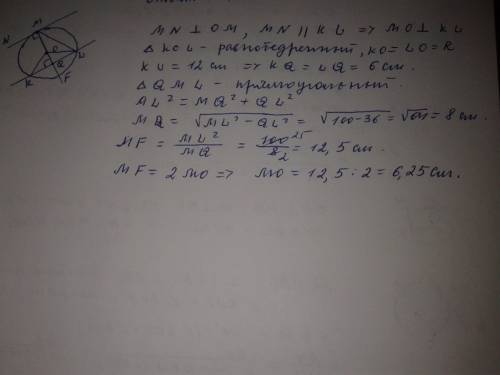 MN ⊥ OM, MN ∥ KL => MO ⊥ KL
△ KOL - равнобедренный, KO = LO = R
KL = 12 см => KQ = LQ = 6 см.
△ QML - прямоугольный.
ML² = MQ² + QL²
MQ = √(ML² - QL²) = √(100-36) = √64 = 8 см.
MF = ML²/MQ = 100²⁵/8₂ = 12,5 см.
MF = 2 MO => MO = 12,5 : 2 = 6,25 см.
N M O L Q K F